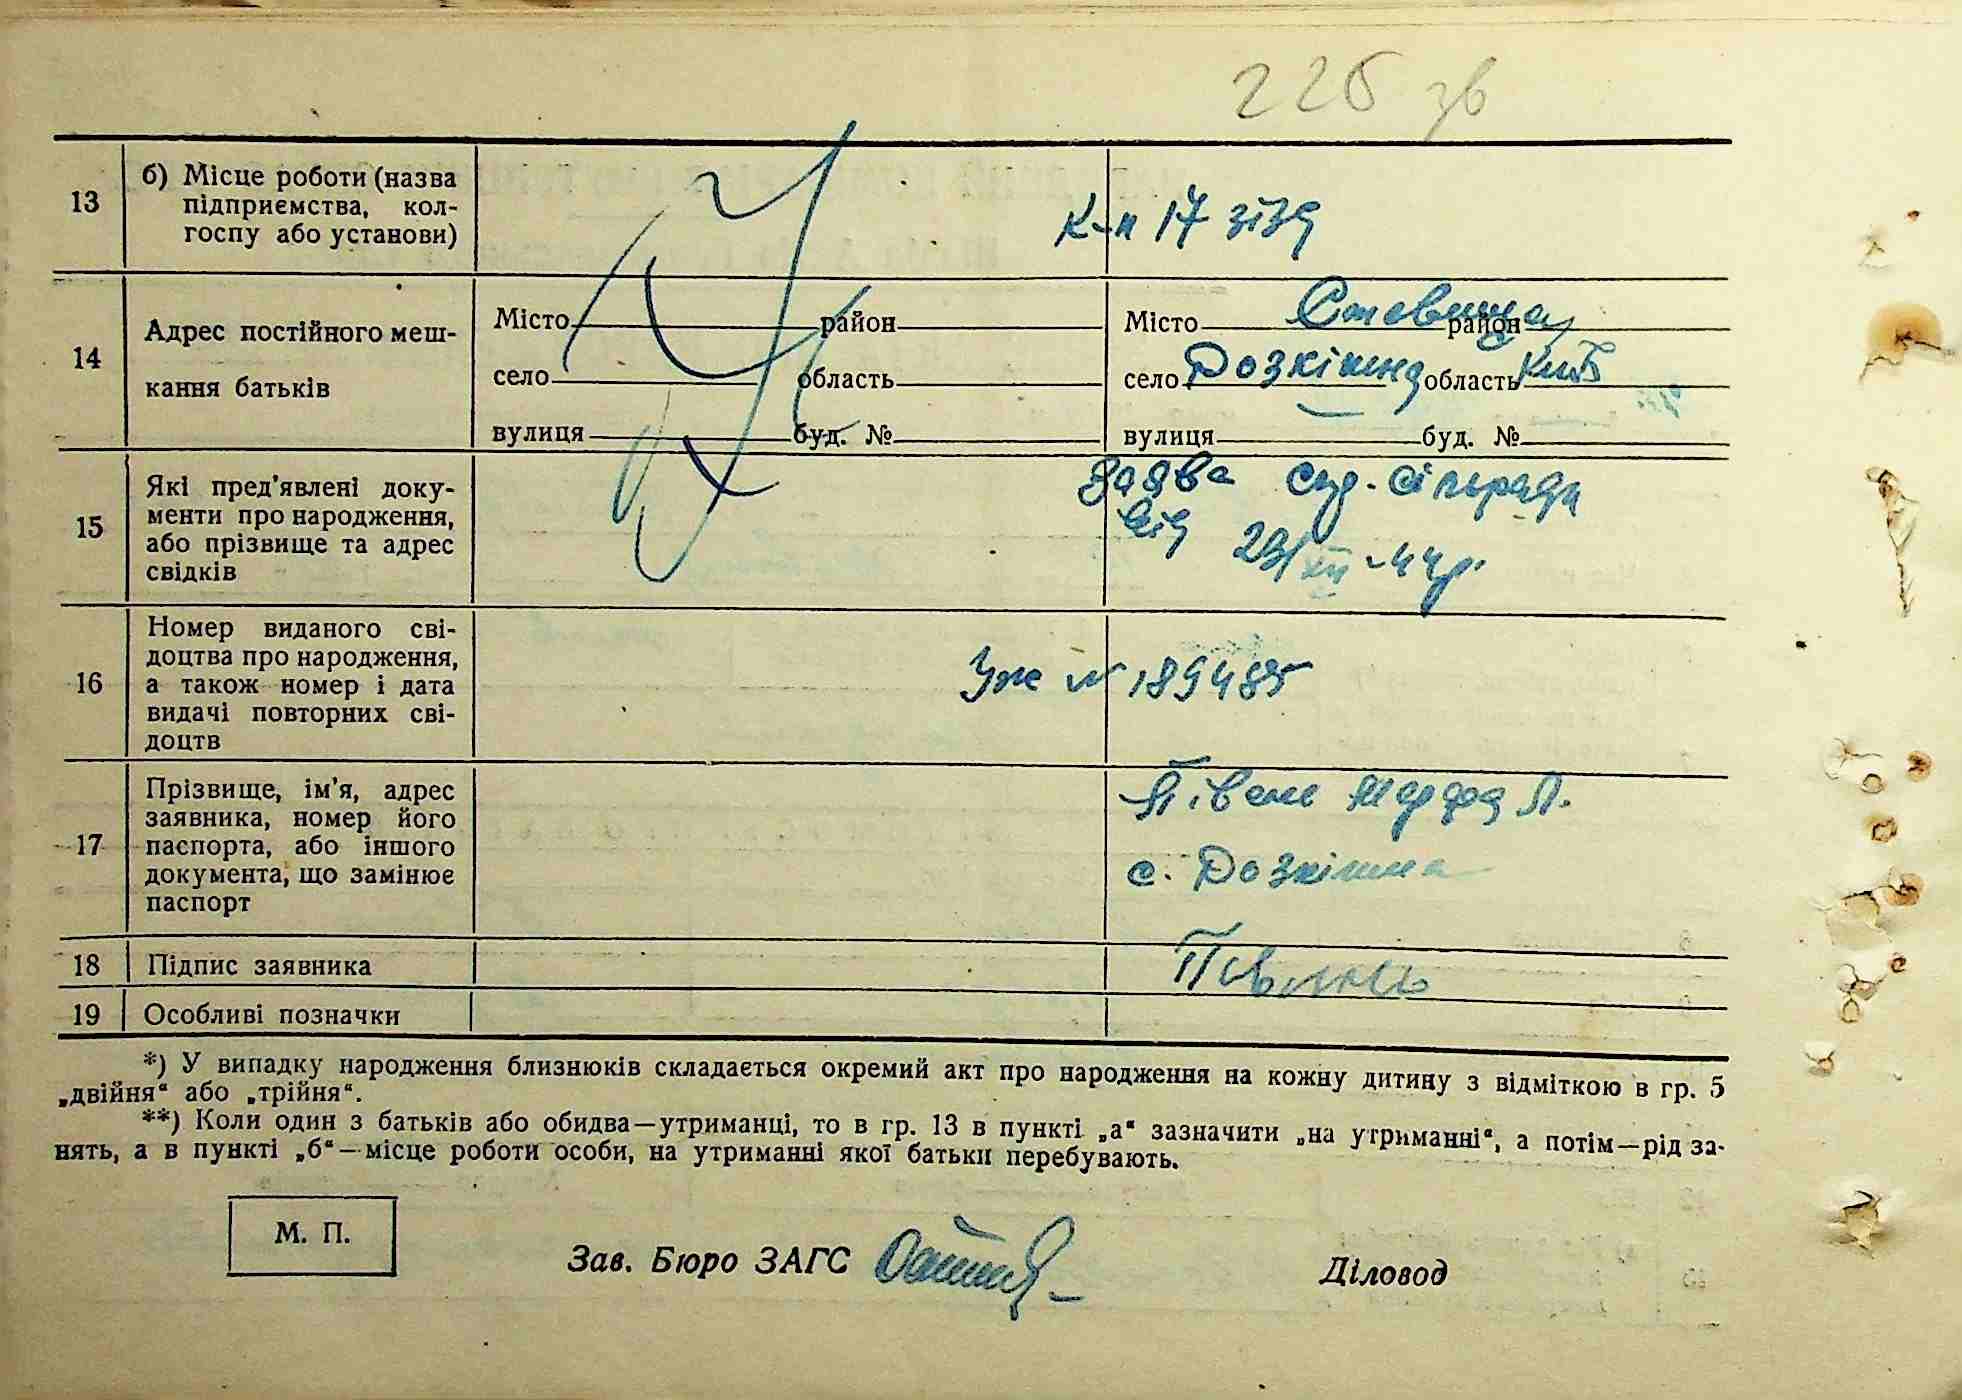 226 зв
13
б) Місце роботи (назва
підприємства, кол-
госпу або установи)
К-п 17 зїзд
14
Адрес постійного меш-
кання батьків
Місто район
село область
вулиця буд. №
Місто Ставища район
село Розкішна область Київ
вулиця буд. №
15
Які пред'явлені доку-
менти про народження,
або прізвище та адрес
свідків
Заява сільради
від 23/XII-44р.
16
Номер виданого сві-
доцтва про народження,
а також номер і дата
видачі повторних сві-
доцтв
Уж № 189485
17
Прізвище, ім'я, адрес
заявника, номер його
паспорта, або іншого
документа, що замінює
паспорт
Півень Марфа Л.
с. Розкішна
18
Підпис заявника
Півень
19
Особливі позначки
*) У випадку народження близнюків складається окремий акт про народження на кожну дитину з відміткою в гр. 5
„двійня“ або „трійня“.
**) Коли один з батьків або обидва—утриманці, то в гр. 13 в пункті „а“ зазначити „на утриманні“, а потім—рід за-
нять, а в пункті „б“—місце роботи особи, на утриманні якої батьки перебувають.
М. П.
Зав. Бюро ЗАГС
Діловод